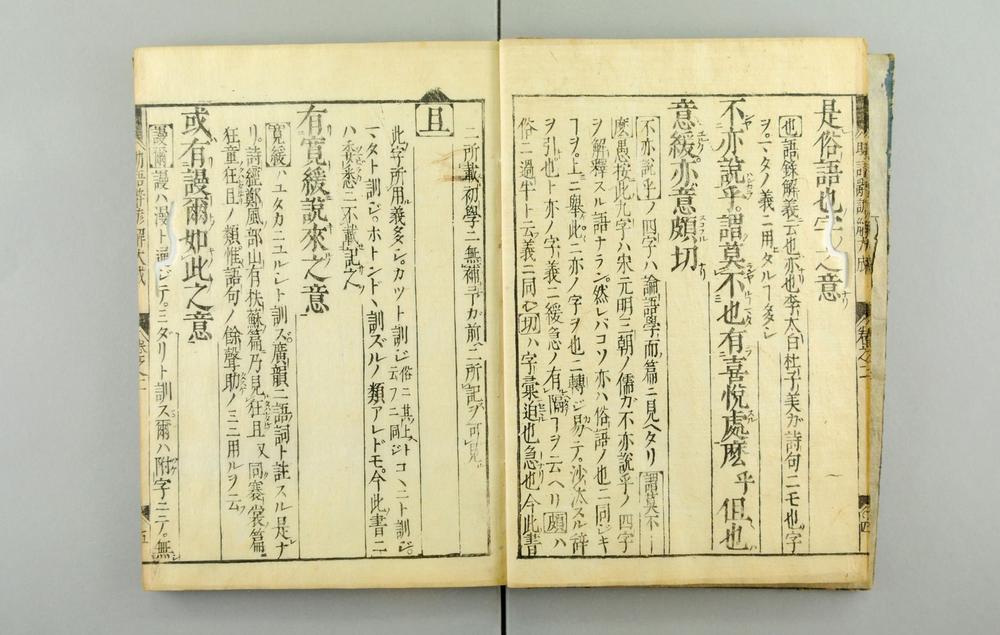 是俗語也字之意
也語錄解義云也亦也李太白杜子美ガ詩句ニモ也字
ヲ亦タノ義ニ用タルヿ多シ
不亦說乎謂莫不也有喜悅處麽乎但也
意緩亦意頗切
不亦說乎ノ四字ハ論語學而篇ニ見ヘタリ謂莫不
麽愚按此九字ハ宋元明三朝ノ儒ガ不亦說乎ノ四字
ヲ解釋スル語ナラン然レバコソ亦ハ俗語ノ也ニ同ジキ
ヿヲ上ニ舉此ニ亦ノ字ヲ也ニ轉ジ易テ沙汰スル辭
ヲ引也ト亦ノ字ノ義ニ緩急ノ有隔ヿヲ云ヘリ頗ハ
俗ニ過半ト云義ニ同シ切ハ字彙迫也急也今此書
ニ所載初學ニ無補予カ前ニ所記ヲ可見
且
此字所用義多シカツト訓ジ俗ニ其上ト云フニ同ジコヽニト訓ジ
マタト訓ジホトンドヽ訓ズルノ類アレドモ今此書ニ
ハ委悉ニ不載記之
有寬緩說來之意
寬緩ハユタカニユルシト訓ズ廣韻ニ語詞ト註スル是ナ
リ詩經鄭風部山有扶蘇篇乃見狂且又同褰裳篇
狂童狂且ノ類惟語句ノ餘聲助ノミニ用ルヲ云
或有謾爾如此之意
謾爾謾ハ漫ト通ジテミダリト訓ス爾ハ附字ニテ無